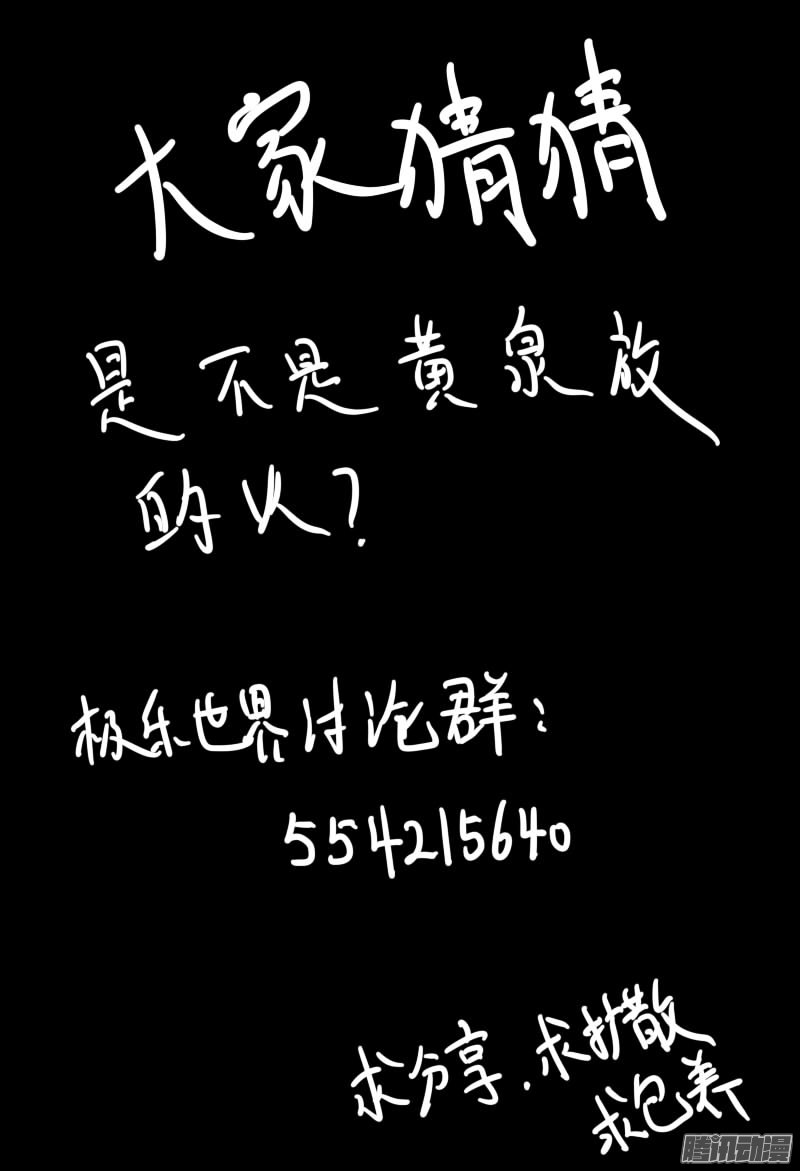 大家猜猜
是不是黄泉放
的火?
极乐世界讨论群:
554215640
求分享.求扩散
求包养
腾讯动漫